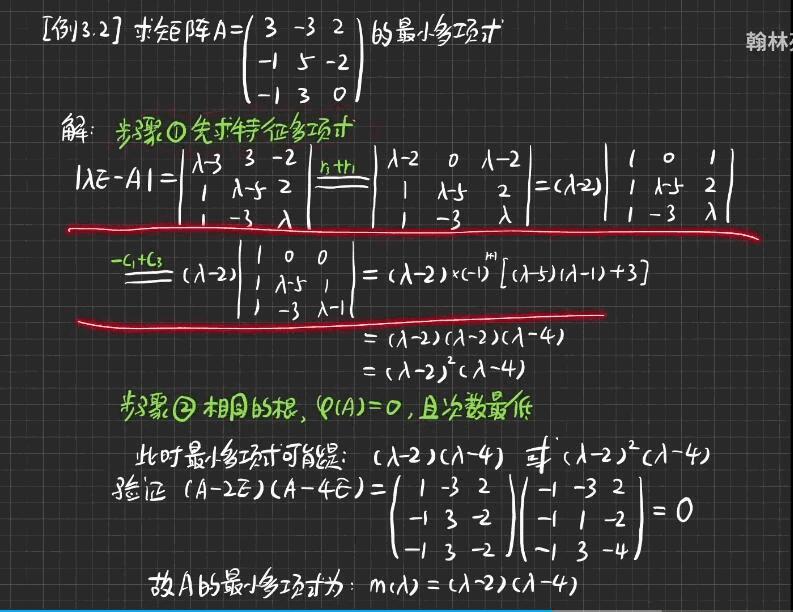 [例3.2] 求矩阵A=(3 -3 2; -1 5 -2; -1 3 0)的最小多项式
翰林
解: 步骤①先求特征多项式
|λE-A|=|λ-3 3 -2; 1 λ-5 2; 1 -3 λ| r₃+r₁ = |λ-2 0 λ-2; 1 λ-5 2; 1 -3 λ| =(λ-2)|1 0 1; 1 λ-5 2; 1 -3 λ|
-C₁+C₃ = (λ-2)|1 0 0; 1 λ-5 1; 1 -3 λ-1| = (λ-2)×(-1)¹⁺¹[(λ-5)(λ-1)+3]
= (λ-2)(λ-2)(λ-4)
= (λ-2)²(λ-4)
步骤② 相同的根, φ(A)=0, 且次数最低
此时最小多项式可能是: (λ-2)(λ-4) 或 (λ-2)²(λ-4)
验证 (A-2E)(A-4E)=(1 -3 2; -1 3 -2; -1 3 -2)(-1 -3 2; -1 1 -2; -1 3 -4)=0
故A的最小多项式为: m(λ)=(λ-2)(λ-4)